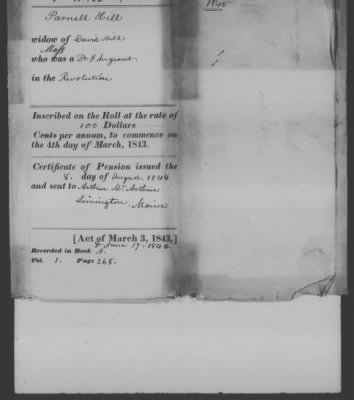 Parnell Hill
widow of David Hill
Mass
who was a Pr. & Sergeant
in the Revolution
Inscribed on the Roll at the rate of
100 Dollars
Cents per annum, to commence on
the 4th day of March, 1843.
Certificate of Pension issued the
8. day of August 1844
and sent to Arthur McArthur
Limington, Maine
[Act of March 3, 1843,]
& June 17. 1844.
Recorded in Book A.
Vol. 1. Page 268.